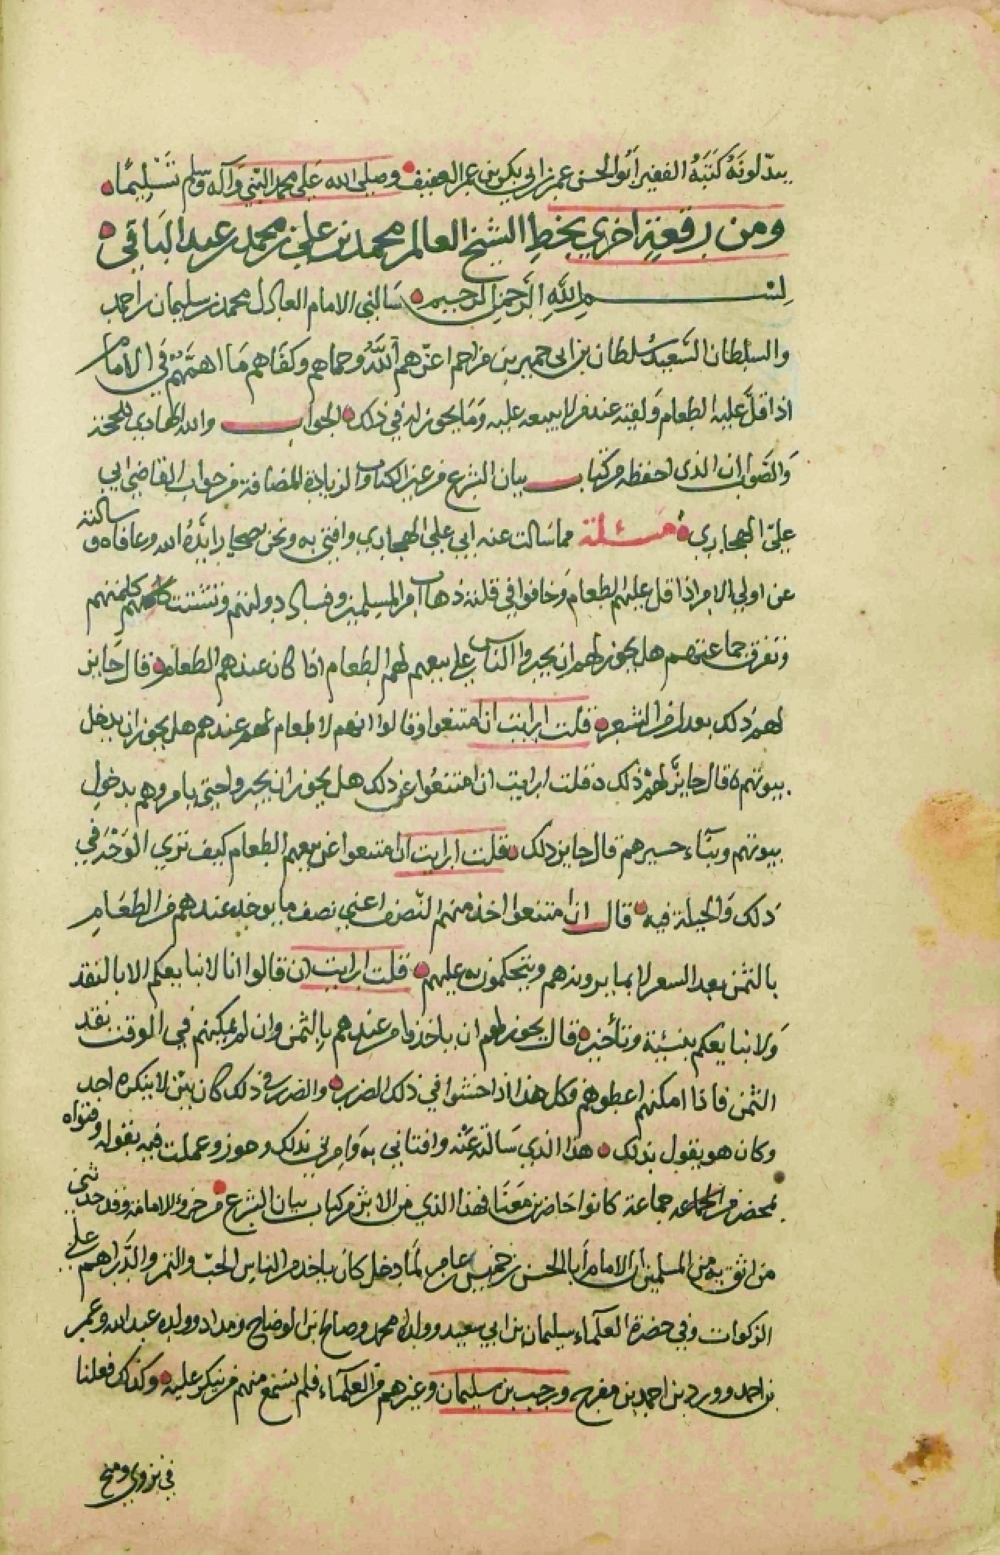 يبدلونه كتبه الفقير أبو الحسن عمر بن ابي بكر بن عبد العفيف وصلى الله على محمد النبي وآله وسلم تسليما
ومن رقعة اخرى بخط الشيخ العالم محمد بن علي بن محمد بن عبد الباقي
بسم الله الرحمن الرحيم سالني الامام العادل محمد بن سليمان بن احمد
والسلطان السعيد سلطان بن ابي حمير بن مزاحم اعزهم الله وحماهم وكفاهم ما اهمهم في الامام
اذا قل عليه الطعام ولقيه عند من لا يبيعه عليه وما يجوز له في ذلك الجواب والله الهادي للحق
والصواب ان الذي احفظه من كتاب بيان الشرع من غير الكتاب والزيادة المضافة من جواب القاضي ابي
علي الهجاري مسئلة مما سالت عنه ابي علي الهجاري وافتى به ونحن بصحار ايده الله وعافاه وسالته
عن اولي الامر اذا قل عليهم الطعام وخافوا في قلته ذهاب امر المسلمين وفساد دولتهم وتشتت كلمتهم
وتفرق جماعتهم هل يجوز لهم ان يجبروا الناس على بيعهم لهم الطعام اذا كان عندهم الطعام قال جايز
لهم ذلك بعدل من السعر قلت ارايت ان امتنعوا وقالوا انهم لا طعام لهم عندهم هل يجوز ان يدخل
بيوتهم قال جايز لهم ذلك قلت ارايت ان امتنعوا عن ذلك هل يجوز ان يجبروا حتى يامروهم بدخول
بيوتهم ويباء حسيرهم قال جايز ذلك قلت ارايت ان امتنعوا عن بيعهم الطعام كيف ترى الوجه في
ذلك والحيلة فيه قال ان امتنعوا اخذ منهم النصف اعني نصف ما يوجد عندهم من الطعام
بالثمن بعد السعر لا بما يرونه هم ويتحكمون به عليهم قلت ارايت ان قالوا انا لا نبايعكم الا بالنقد
ولا نبايعكم بنسئة وتأخير قال يجوز لهم ان ياخذوا من عندهم بالثمن وان لم يمكنهم في الوقت نقد
الثمن فاذا امكنهم اعطوهم وكل هذا اذا خشوا في ذلك الضرر والضرر في ذلك كان بين لا ينكره احد
وكان هو يقول بذلك هذا الذي سالته عنه وافتاني به وامرني بذلك وهوز وعملت فيه بقوله وفتواه
بمحضر من الجماعه جماعة كانوا حاضرين معنا فهذا الذي من الاثر من كتاب بيان الشرع من جزؤ الامامة وقد حدثني
من اثق به من المسلمين ان الامام أبا الحسن بن خميس بن عامر لما دخل كان ياخذ من الناس الحب والتمر والدراهم على
الزكوات وفي حضرة العلماء سليمان بن ابي سعيد وولده محمد وصالح بن الوضاح ومداد وولده عبد الله وعمر
بن احمد وورد بن احمد بن مفرج ورجب بن سليمان وغيرهم من العلماء فلم يسمع منهم من ينكر عليه وكذلك فعلنا
في نزوى ومنح